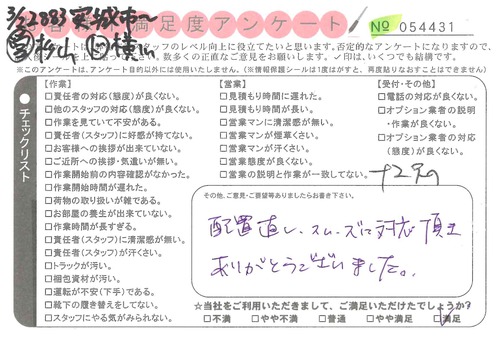 3/22883 茨城市〜
お客様満足度アンケート
№ 054431
営杉山 日横山
※このアンケートは、アンケート目的以外には使用いたしません。(情報保護シールは1度はがすと、再度貼りなおすことはできません)
チェックリスト
【作業】
□責任者の対応(態度)が良くない。
□他のスタッフの対応(態度)が良くない。
□作業を見ていて不安がある。
□責任者(スタッフ)に好感が持てない。
□お客様への挨拶が出来ていない。
□ご近所への挨拶・気遣いが無い。
□作業開始前の内容確認がなかった。
□作業開始時間が遅れた。
□荷物の取り扱いが雑である。
□お部屋の養生が出来ていない。
□作業時間が長すぎる。
□責任者(スタッフ)に清潔感が無い。
□責任者(スタッフ)が汗くさい。
□トラックが汚い。
□梱包資材が汚い。
□運転が不安(下手)である。
□靴下の履き替えをしてない。
□スタッフにやる気がみられない。
【営業】
□見積もり時間に遅れた。
□見積もり時間が長い。
□営業マンに清潔感が無い。
□営業マンが煙草くさい。
□営業マンが汗くさい。
□営業態度が良くない。
□営業の説明と作業が一致してない。
【受付・その他】
□電話の対応が良くない。
□オプション業者の説明
・作業が良くない。
□オプション業者の対応
(態度)が良くない。
その他、ご意見・ご要望等ありましたらお書き下さい。
配置直し、スムーズに対応頂き
ありがとうございました。
☆当社をご利用いただきまして、ご満足いただけたでしょうか?
□不満 □やや不満 □普通 □やや満足 ☑満足